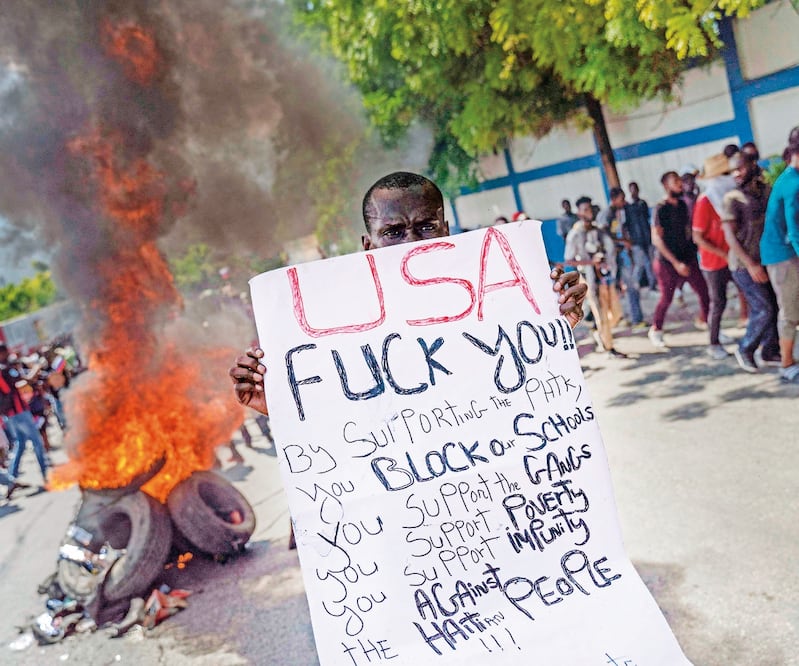 USA
FUCK YOU!!
By SUPPORTING the PHTK,
you BLOCK Our SCHOOLS
you SUPPORT the GANGS
you SUPPORT POVERTY
you SUPPORT IMPUNITY
AGAINST
THE HAITIAN PEOPLE
!!!